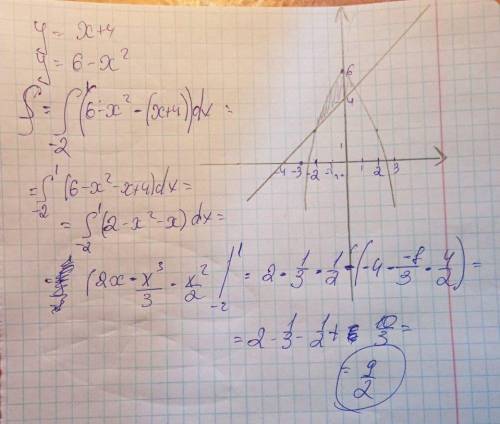 y = x+4
y = 6 - x²
S = ∫₋₂¹ (6 - x² - (x+4))dx =
= ∫₋₂¹ (6 - x² - x+4)dx =
= ∫₋₂¹ (2 - x² - x)dx =
(2x - x³/3 - x²/2 |₋₂¹ = 2 - 1/3 - 1/2 - (-4 - -8/3 - 4/2) =
= 2 - 1/3 - 1/2 + 10/3 =
= 9/2
6
4
1
-4 -3 -2 -1 2 3